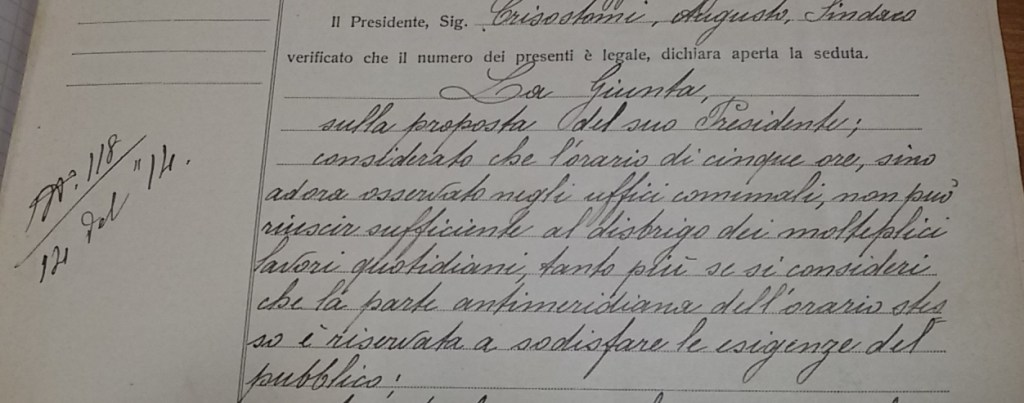 Il Presidente, Sig. Crisostomi, Augusto, Sindaco
verificato che il numero dei presenti è legale, dichiara aperta la seduta.
La Giunta,
sulla proposta del suo Presidente;
considerato che l'orario di cinque ore, sino
adora osservato negli uffici comunali, non può
riuscir sufficiente al disbrigo dei molteplici
lavori quotidiani, tanto più se si consideri
che la parte antimeridiana dell'orario stes
so è riservata a sodisfare le esigenze del
pubblico;
N°. 118
del "14.